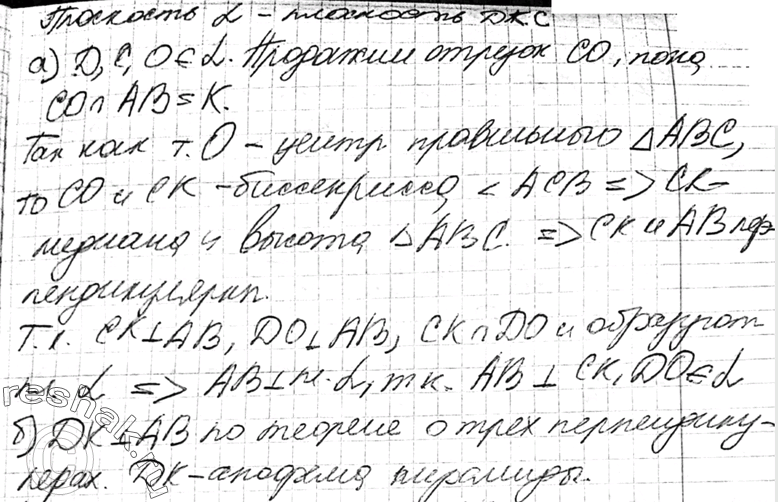 Плоскость α – плоскость DKC
а) D, C, O ∈ α. Продолжим отрезок CO, пока
CO ∩ AB = K.
Так как т. O – центр правильного △ABC,
то CO и CK – биссектрисса ∠ACB => CK –
медиана и высота △ABC. => CK и AB пер-
пендикулярн.
Т.к. CK⊥AB, DO⊥AB, CK∩DO и образуют
пл. α => AB⊥пл. α, т.к. AB ⊥ CK, DO ∈ α
б) DK⊥AB по теореме о трех перпендику-
лярах. DK – апофема пирамиды.
reshak.ru